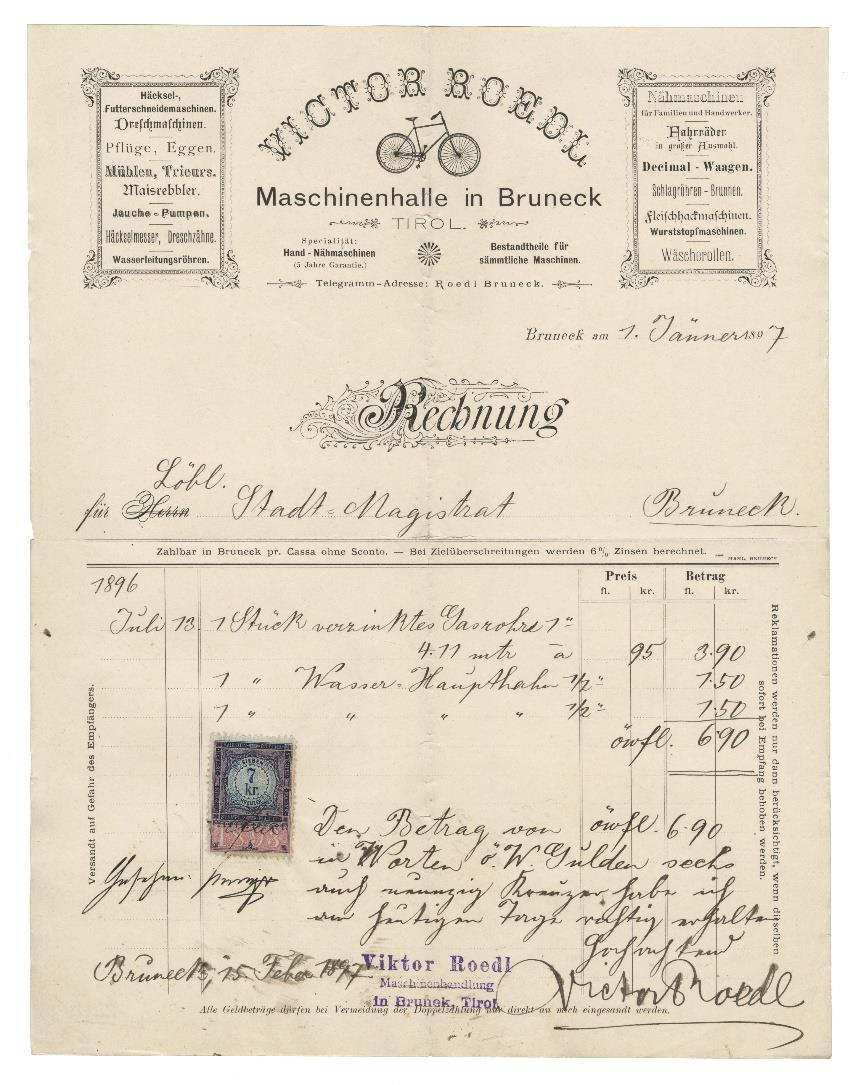 VICTOR ROEDL
Maschinenhalle in Bruneck
TIROL.
Häcksel-,
Futterschneidemaschinen.
Dreschmaschinen.
Pflüge, Eggen.
Mühlen, Trieurs.
Maisrebbler.
Jauche-Pumpen.
Häckselmesser, Dreschzähne.
Wasserleitungsröhren.
Specialität:
Hand-Nähmaschinen
(5 Jahre Garantie.)
Bestandtheile für
sämmtliche Maschinen.
Telegramm-Adresse: Roedl Bruneck.
Nähmaschinen
für Familien und Handwerker.
Fahrräder
in großer Auswahl.
Decimal-Waagen.
Schlagröhren-Brunnen.
Fleischhackmaschinen.
Wurststopfmaschinen.
Wäscherollen.
Bruneck am 1. Jänner 1897
Rechnung
Löbl.
für Herrn Stadt-Magistrat Bruneck.
Zahlbar in Bruneck pr. Cassa ohne Sconto. — Bei Zielüberschreitungen werden 6% Zinsen berechnet.
MAHL, BRUNECK
Preis Betrag
fl. kr. fl. kr.
1896
Juli 13 1 Stück verzinktes Gasrohrs 1"
4·11 mtr à 95 3·90
1 " Wasser-Haupthahn 1/2" 1·50
1 " " " " 1/2" 1·50
öwfl. 6·90
7
kr.
Den Betrag von öwfl. 6·90
in Worten ö. W. Gulden sechs
auch neunzig Kreuzer habe ich
am heutigen Tage richtig erhalten
Hochachtend
Victor Roedl
Gesehen.
Bruneck, 15. Feber 1897
Viktor Roedl
Maschinenhandlung
in Brunek, Tirol.
Alle Geldbeträge dürfen bei Vermeidung der Doppelzahlung nur direkt an mich eingesandt werden.
Versandt auf Gefahr des Empfängers.
Reklamationen werden nur dann berücksichtigt, wenn dieselben
sofort bei Empfang behoben werden.